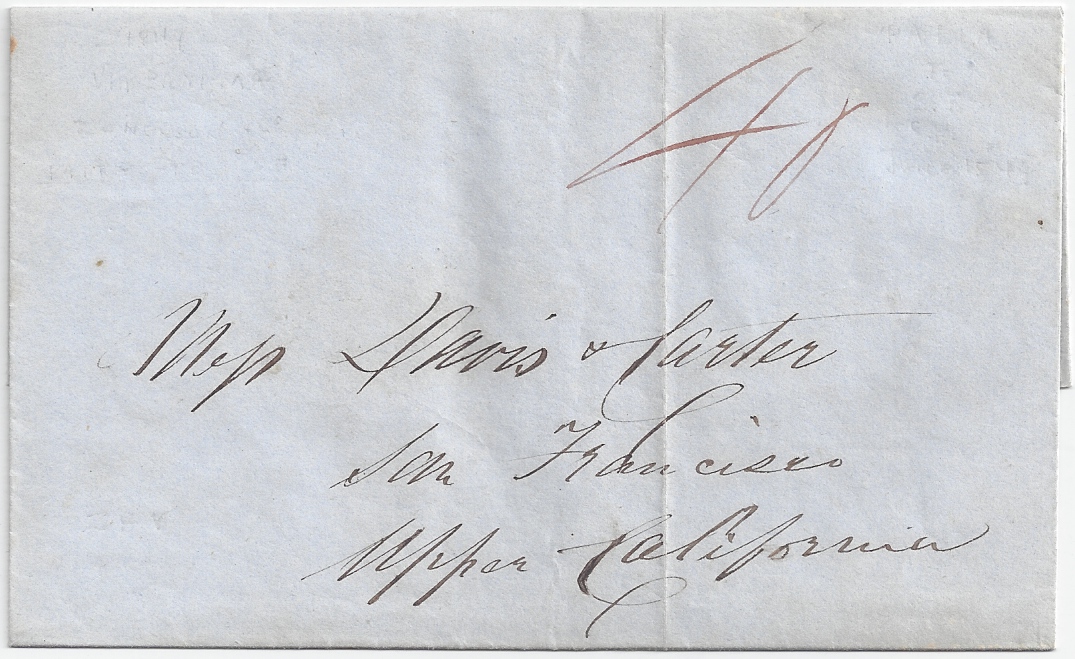 40
Mess Davis & Carter
San Francisco
Upper California